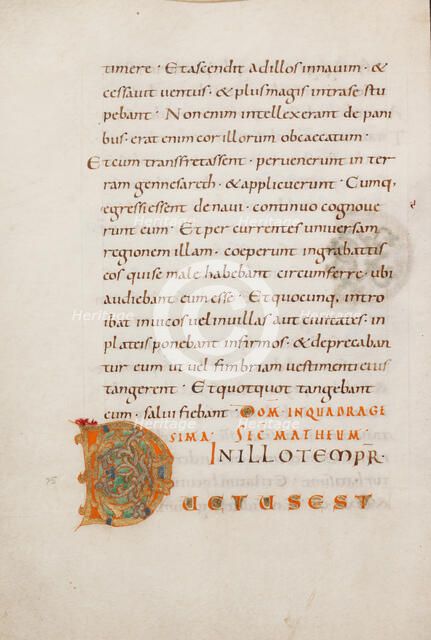 timere · Et ascendit ad illos in navim · &
cessavit ventus · & plus magis intra se stu
pebant · Non enim intellexerant de pani
bus · erat enim cor illorum obcaecatum ·
Et cum transfretassent · pervenerunt in ter
ram gennesareth · & applicuerunt · Cumq,
egressi essent de navi · continuo cognove
runt eum · Et percurrentes universam
regionem illam · coeperunt in grabattis
eos qui se male habebant circumferre · ubi
audiebant eum esse · Et quocunq, intro
ibat in vicos vel in villas aut civitates · in
plateis ponebant infirmos · & deprecaban
tur eum ut vel fimbriam vestimenti eius
tangerent · Et quotquot tangebant
eum · salvi fiebant · DOM · IN QUADRAGE
SIMA · SEC MATHEUM ·
IN ILLO TEMPR
DUCTUS EST
75
Heritage
Heritage
Heritage
Heritage
Heritage
Heritage
©